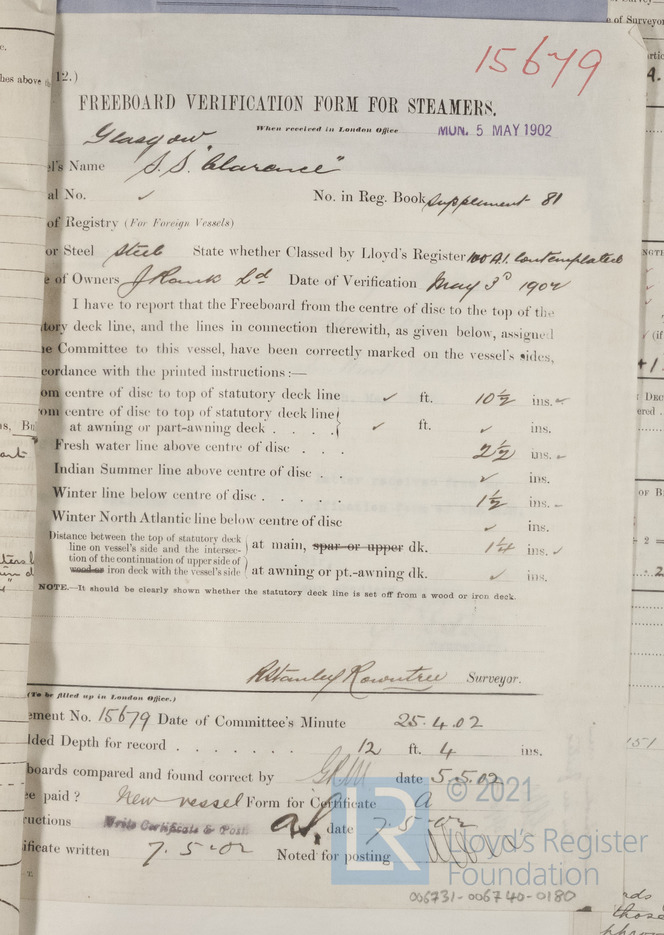 15679
12.)
FREEBOARD VERIFICATION FORM FOR STEAMERS.
Glasgow
When received in London Office
MUN. 5 MAY 1902
l's Name S.S. "Clarence"
al No. ✓ No. in Reg. Book Supplement 81
of Registry (For Foreign Vessels)
or Steel Steel State whether Classed by Lloyd's Register 100 A.1. Contemplated
e of Owners J Rank Ld Date of Verification May 3d 1902
I have to report that the Freeboard from the centre of disc to the top of the
tory deck line, and the lines in connection therewith, as given below, assigned
he Committee to this vessel, have been correctly marked on the vessel's sides,
cordance with the printed instructions :—
om centre of disc to top of statutory deck line ✓ ft. 10½ ins.
om centre of disc to top of statutory deck line
at awning or part-awning deck . . . . ✓ ft. ✓ ins.
Fresh water line above centre of disc . . . 2½ ins.
Indian Summer line above centre of disc . . ✓ ins.
Winter line below centre of disc . . . . . 1½ ins.
Winter North Atlantic line below centre of disc ✓ ins.
Distance between the top of statutory deck
line on vessel's side and the intersec- at main, spar or upper dk. 1¼ ins. ✓
tion of the continuation of upper side of
wood or iron deck with the vessel's side at awning or pt.-awning dk. ✓ ins.
NOTE.—It should be clearly shown whether the statutory deck line is set off from a wood or iron deck.
R Stanley Rowntree Surveyor.
(To be filled up in London Office.)
ement No. 15679 Date of Committee's Minute 25.4.02
lded Depth for record . . . . . . . 12 ft. 4 ins.
boards compared and found correct by date 5.5.02
e paid ? New vessel Form for Certificate A
ructions Write Certificate & Post date 7-5-02
ificate written 7.5-02 Noted for posting
© 2021
LR
Lloyd's Register
Foundation
006731-006740-0180